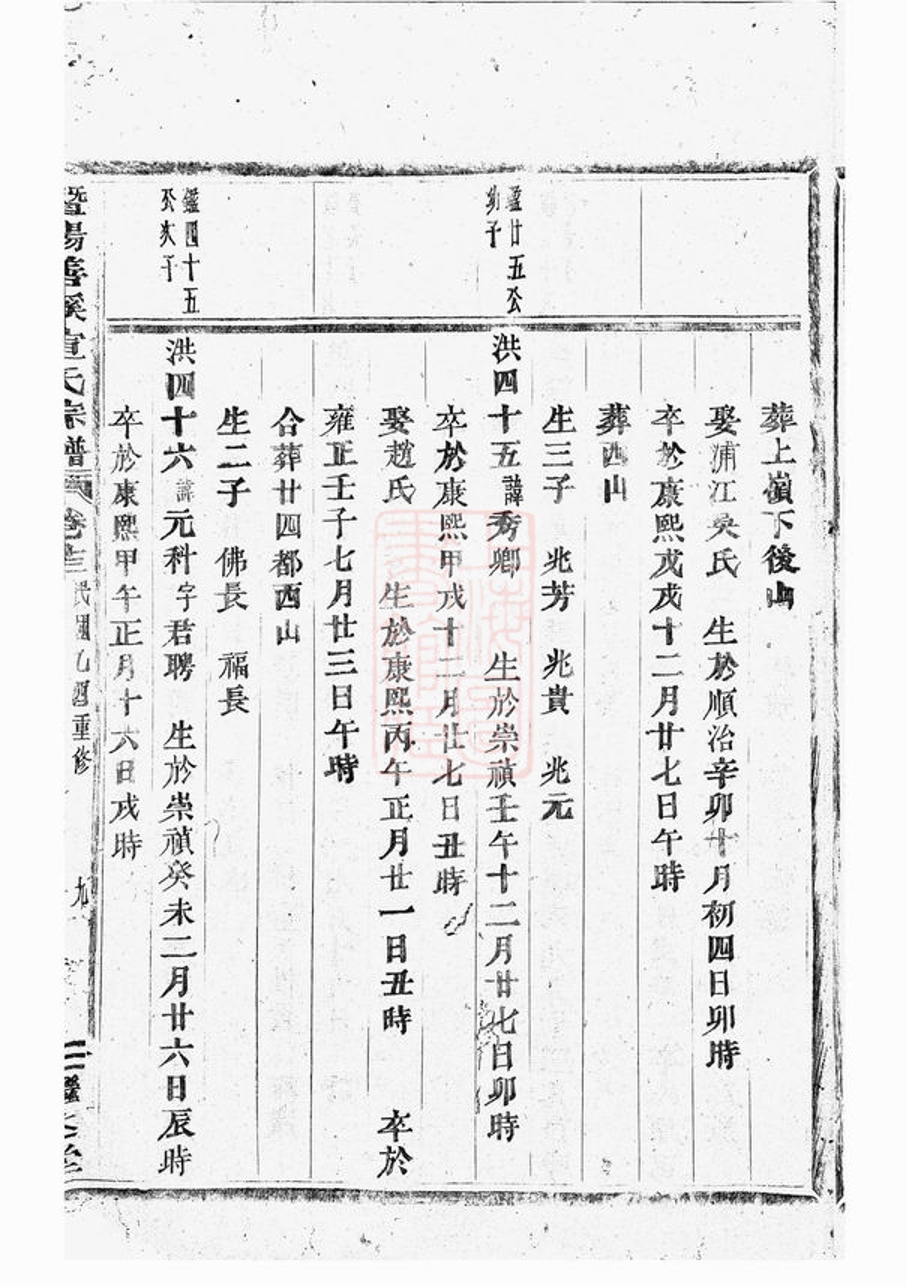 葬上嶺下後山
娶浦江吳氏 生於順治辛卯十月初四日卯時
卒於康熙戊戌十二月廿七日午時
葬西山
生三子 兆芳 兆貴 兆元
鑑廿五公
幼子
洪四十五諱秀卿 生於崇禎壬午十二月廿七日卯時
卒於康熙甲戌十二月廿七日丑時
娶趙氏 生於康熙丙午正月廿一日丑時 卒於
雍正壬子七月廿三日午時
合葬廿四都西山
生二子 佛長 福長
鑑四十五
公次子
洪四十六諱元科字君聘 生於崇禎癸未二月廿六日辰時
卒於康熙甲午正月十六日戌時
暨陽善溪宣氏宗譜 卷十三 民國乙酉重修 九